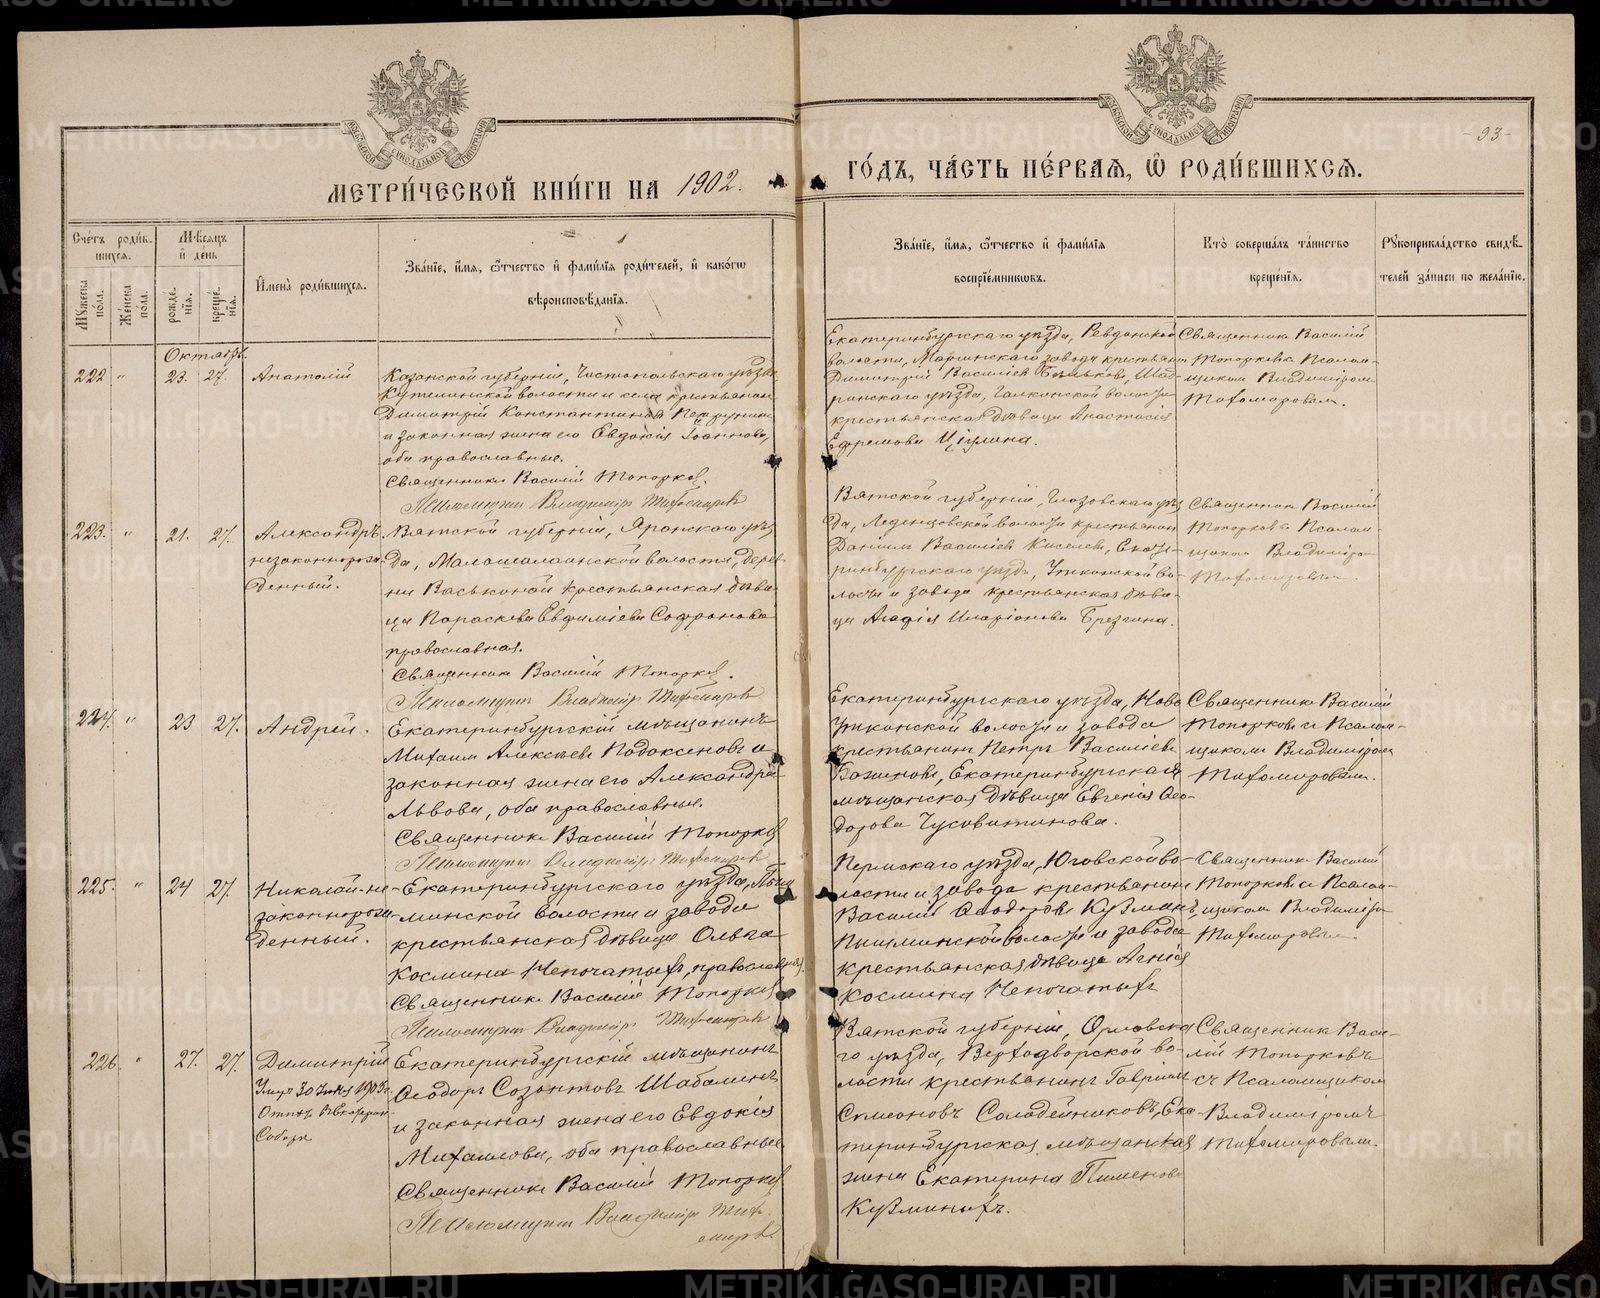 МЕТРИ́ЧЕСКОЙ КНИ́ГИ НА 1902.
ГО́ДЪ, ЧА́СТЬ ПЕ́РВАЯ, Ѿ РОДИ́ВШИХСЯ.
- 93 -
Сче́тъ роди́в-
шихся.
Мꙋжеска по́ла.
Же́нска по́ла.
Мѣ́сяцъ и҆ день
рожде́нїя.
креще́нїя.
И҆мена̀ роди́вшихся.
Зва́нїе, и҆́мя, ѻ҆́тчество и҆ фами́лїя роди́телей, и҆ како́гѡ
вѣроисповѣ́данїя.
Зва́нїе, и҆́мя, ѻ҆́тчество и҆ фами́лїя
воспрїе́мникѡвъ.
Кто̀ соверша́лъ та́инство
креще́нїя.
Рꙋкоприкла́дство свидѣ́-
телей за́писи по жела́нїю.
Октябрь.
222 " 23. 27. Анатолій
Казанской губерніи, Чистопольскаго уѣзда
волости и села крестьянинъ
Димитрій Константиновъ
и законная жена его Евдокія Іоаннова,
оба православные.
Священникъ Василій Топорковъ.
Псаломщикъ Владиміръ Тихомировъ
Екатеринбургскаго уѣзда, Ревдинской
волости, Маріинскаго завода крестьянинъ
Димитрій Василіевъ
уѣзда, волости
крестьянская дѣвица Анастасія
Ефремова
Священникъ Василій
Топорковъ с Псалом-
щикомъ Владиміромъ
Тихомировымъ.
223. " 21. 27. Александръ
незаконнорож-
денный.
Вятской губерніи, Яранскаго уѣз-
да, волости, дерев-
ни крестьянская дѣви-
ца Параскева Евфиміева Софронова
православная.
Священникъ Василій Топорковъ.
Псаломщикъ Владиміръ Тихомировъ
Вятской губерніи, Глазовскаго уѣз-
да, Леденцовской волости крестьянинъ
Даніилъ Василіевъ Киселевъ, Екате-
ринбургскаго уѣзда, Уткинской во-
лости и завода крестьянская дѣви-
ца Агафія Иларіонова Брезгина.
Священникъ Василій
Топорковъ с Псалом-
щикомъ Владиміром
Тихомировымъ.
224. " 23 27. Андрей.
Екатеринбургскій мѣщанинъ
Михаилъ Алексѣевъ Подоксеновъ и
законная жена его Александра
Львова, оба православные.
Священникъ Василій Топорковъ
Псаломщикъ Владиміръ Тихомировъ
Екатеринбургскаго уѣзда, Ново
Уткинской волости и завода
крестьянинъ Петръ Василіевъ
Екатеринбургская
мѣщанская дѣвица Евгенія Ѳео-
дорова Чусовитинова.
Священникъ Василій
Топорковъ с Псалом-
щикомъ Владиміромъ
Тихомировымъ.
225. " 24 27. Николай не-
законнорож-
денный.
Екатеринбургскаго уѣзда, Пыш
минской волости и завода
крестьянская дѣвица Ольга
Космина Непочатыхъ, православная.
Священникъ Василій Топорковъ
Псаломщикъ Владиміръ Тихомировъ
Пермскаго уѣзда, Юговской во-
лости и завода крестьянинъ
Василій Ѳеодоровъ Кузминъ,
Пышминской волости и завода
крестьянская дѣвица Агнія
Космина Непочатыхъ
Священникъ Василій
Топорковъ с Псалом-
щикомъ Владиміро-
Тихомировымъ.
226. " 27. 27. Димитрій
30 1903г.
Собора
Екатеринбургскій мѣщанинъ
Ѳеодоръ Созонтовъ Шабалинъ
и законная жена его Евдокія
Михаилова, оба православные
Священникъ Василій Топорковъ
Псаломщикъ Владиміръ Тихо-
мировъ
Вятской губерніи, Орловска
го уѣзда, Верходворской во-
лости крестьянинъ Гавріилъ
Симеоновъ Солодейниковъ, Ека-
теринбургская мѣщанская
жена Екатерина Пименова
Кузминыхъ.
Священникъ Васи-
лій Топорковъ
съ Псаломщикомъ
Владиміромъ
Тихомировымъ.
METRIKI.GASO-URAL.RU